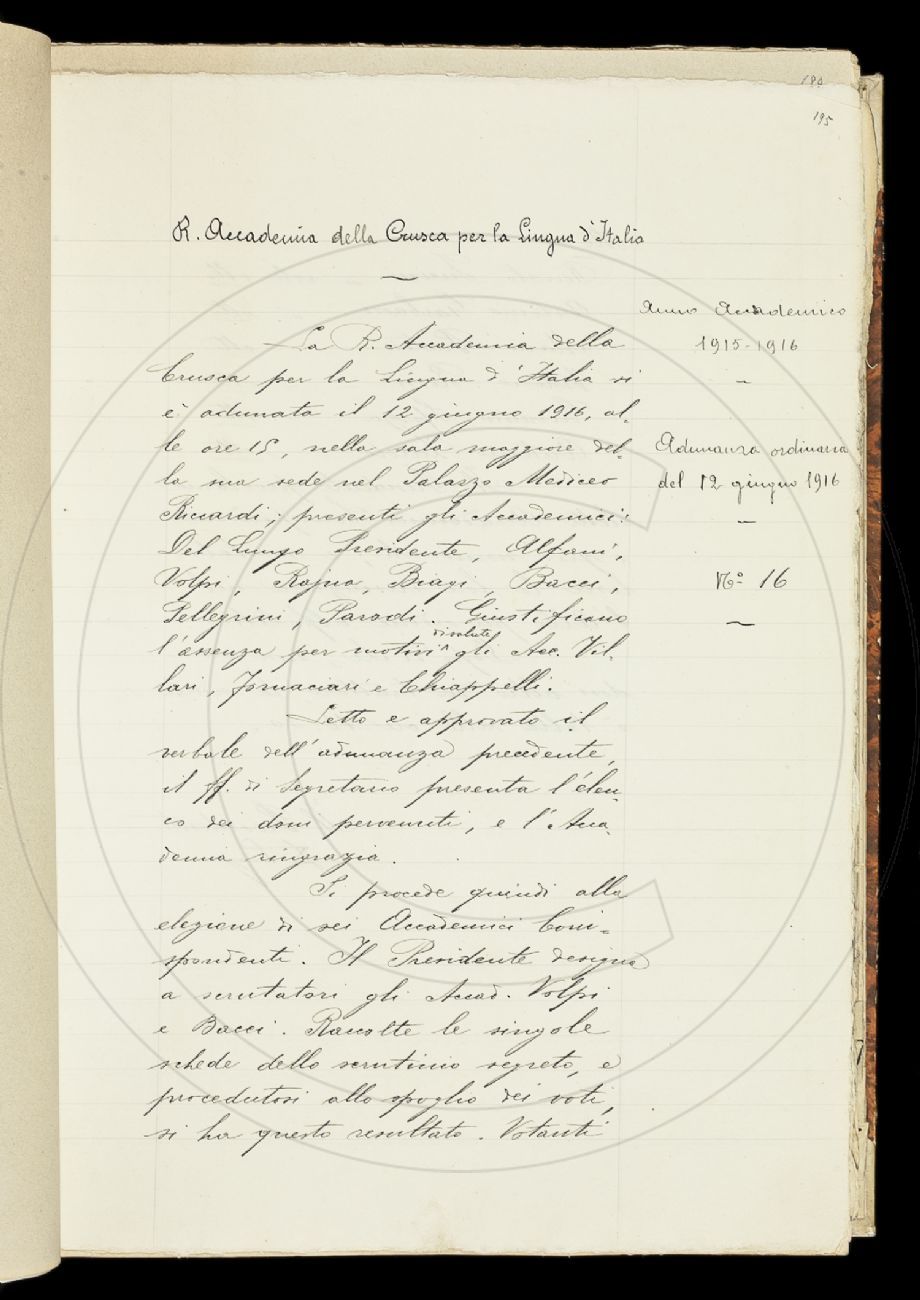 189
195
R. Accademia della Crusca per la Lingua d'Italia
Anno Accademico
1915-1916
Adunanza ordinaria
del 12 giugno 1916
N.º 16
La R. Accademia della
Crusca per la Lingua d'Italia si
è adunata il 12 giugno 1916, al-
le ore 15, nella sala maggiore del-
la sua sede nel Palazzo Mediceo
Riccardi; presenti gli Accademici:
Del Lungo Presidente, Alfani,
Volpi, Rajna, Biagi, Bacci,
Pellegrini, Parodi. Giustificano
l'assenza per motivi di salute gli Acc. Vil-
lari, Fornaciari e Chiappelli.
Letto e approvato il
verbale dell'adunanza precedente,
il ff. di Segretario presenta l'elen-
co dei doni pervenuti, e l'Acca-
demia ringrazia.
Si procede quindi alla
elezione di sei Accademici Corri-
spondenti. Il Presidente designa
a scrutatori gli Accad. Volpi
e Bacci. Raccolte le singole
schede dello scrutinio segreto, e
procedutosi allo spoglio dei voti,
si ha questo resultato. Votanti